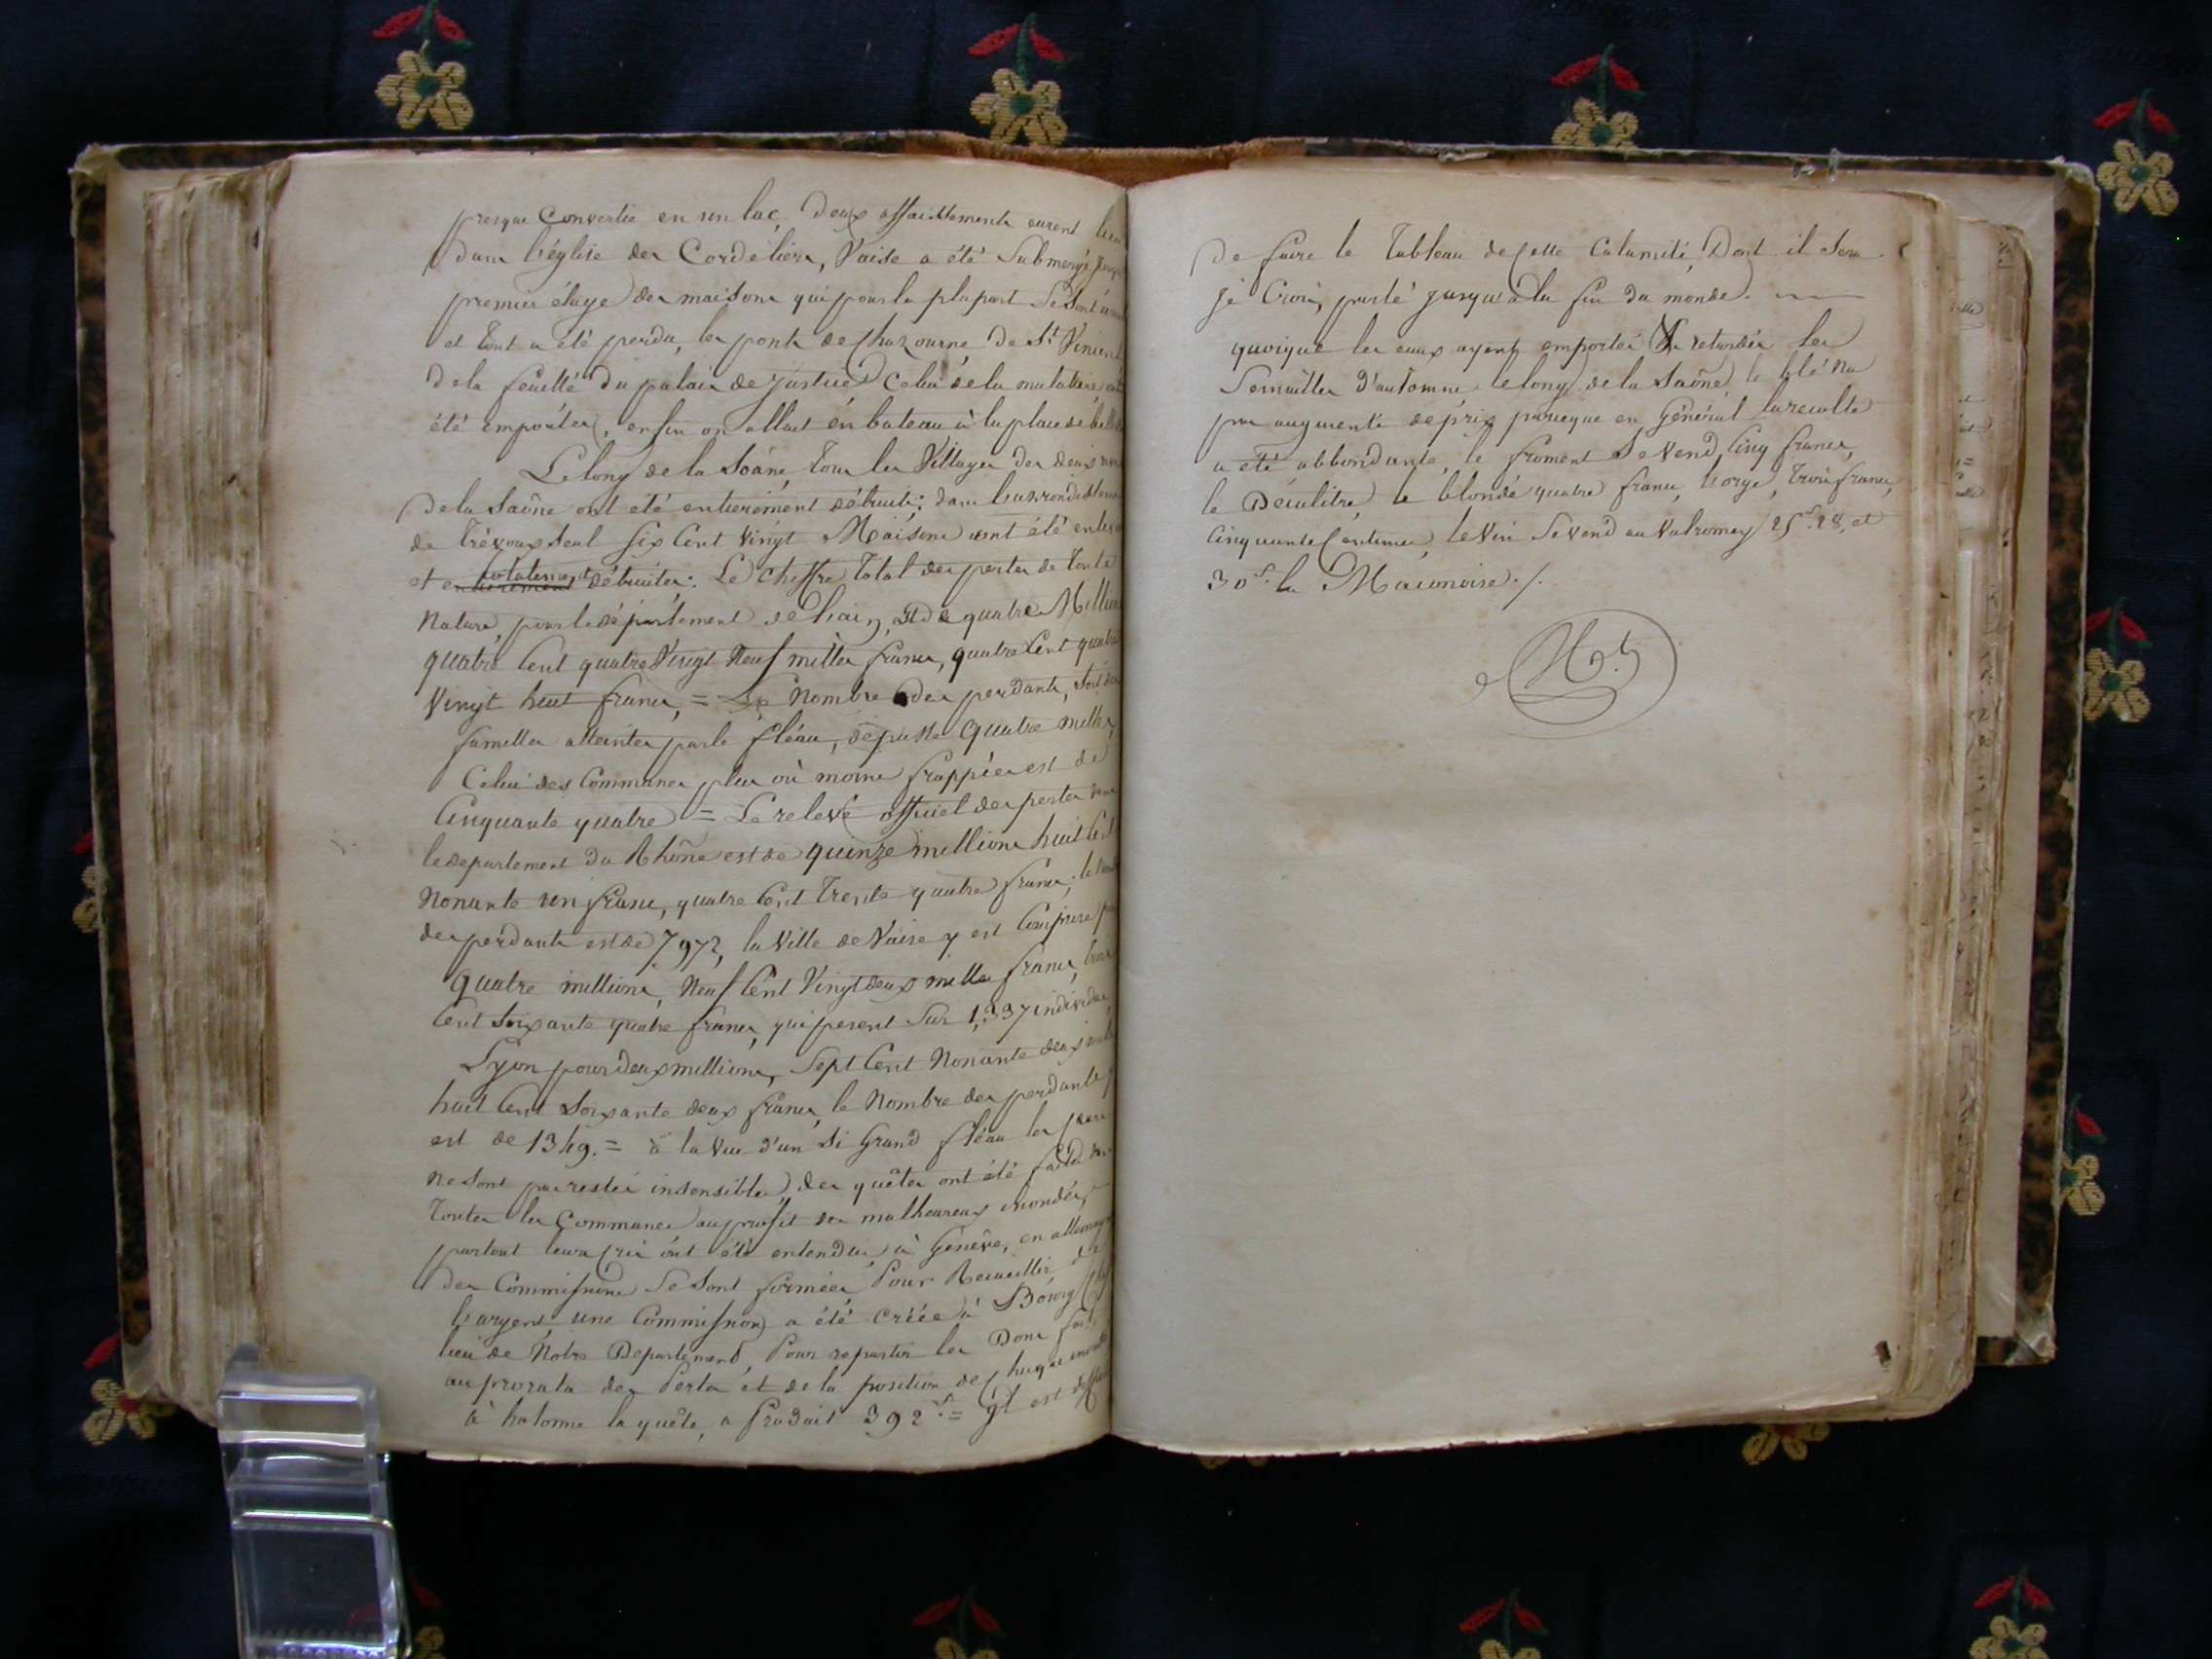 presque Convertie en un lac, deux affaissements eurent lieu
dans l'église des Cordeliers, Vaise a été Submergé
premier étage des maisons qui pour la plupart Se sont
et tout a été perdu, les ponts de Chazourne, de St Vincent
dela feuillé du palais de justice, Celui de la mulatiere, ont
été emportés, enfin on allait en bateau à la place de
Le long de la Soâne, tous les Villages des deux
De la Saône ont été entierement détruits; dans
de Trévoux Seul Six Cent Vingt Maisons ont été
et entierement totalement détruites: Le Chiffre Total des pertes de toute
Nature, pour le département de l'ain, est de quatre
quatre Cent quatre Vingt Neuf milles francs, quatre Cent quatre
Vingt huit francs, = Le Nombre des perdants, Soit des
familles atteintes par le fléau, dépasse quatre milles,
Celui des Communes plus où moins frappées est de
Cinquante quatre = Le relevé officiel des pertes
le departement du Rhône est de quinze millions huit Cent
Nonante un francs, quatre Cent trente quatre francs; le
des perdants est de 7972, la Ville de Vaise y est Comprise
quatre millions, Neuf Cent Vingt deux mille francs,
Cent Soixante quatre francs, qui pesent Sur 1,337 individus,
Lyon pour deux millions, Sept Cent Nonante deux
huit Cent Soixante deux francs, le Nombre des perdants
est de 1349. = à la Vue d'un Si Grand fléau les
ne sont pas restés insensibles, des quêtes ont été faites
toutes les Communes au profit des malheureux inondés,
partout leurs cris ont été entendus, à Genêve, en
des Commissions Se Sont formées Pour Recueillir de
l'argent, une Commission a été créée à Bourg Chef
lieu de Notre Departement, Pour repartir les Dons
au prorata des Pertes et de la position de Chaque
à hotonne la quête, a Produit 392 f. = il est
De faire le Tableau de Cette Calamité, Dont il Sera
je Crois, parlé jusqu'à la fin du monde.
quoique les eaux ayent emportés & retardés les
Semailles d'automne, le long de la Saône, le blé Na
pas augmenté de prix parceque en Général la recolte
a été abbondante, le froment Se Vend Cinq francs,
le Décalitre, le blondé quatre francs, l'orge, trois francs,
Cinquante Centimes, le Vin Se Vend au Valromey 25 f. 28, et
30 f. la Maconoise ./.